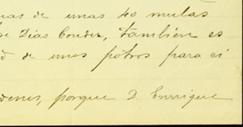 nas de unas 40 mulas
Dias Conder, tambien es
de unos potros para el
denes, porque D Enrique